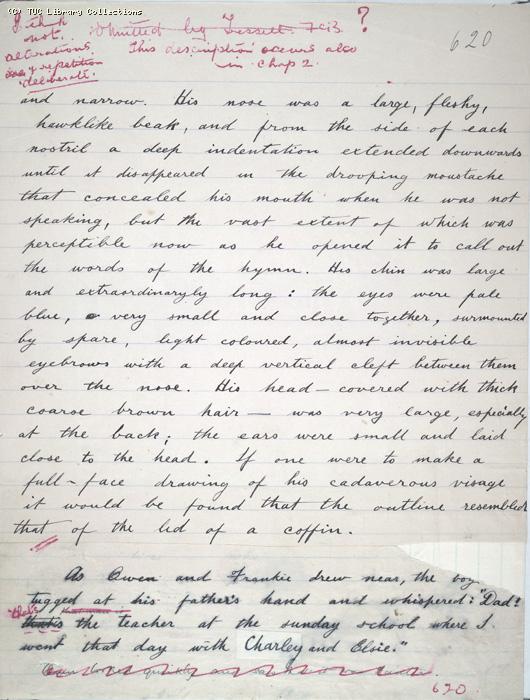 (C) TUC Library Collections
I think not.
alterations,
repetition deliberate.
Omitted by Tressell. FCB. ?
This description occurs also
in Chap 2.
620
and narrow. His nose was a large, fleshy,
hawklike beak, and from the side of each
nostril a deep indentation extended downwards
until it disappeared in the drooping moustache
that concealed his mouth when he was not
speaking, but the vast extent of which was
perceptible now as he opened it to call out
the words of the hymn. His chin was large
and extraordinaryly long: the eyes were pale
blue, very small and close together, surmounted
by spare, light coloured, almost invisible
eyebrows with a deep vertical cleft between them
over the nose. His head — covered with thick
coarse brown hair — was very large, especially
at the back; the ears were small and laid
close to the head. If one were to make a
full-face drawing of his cadaverous visage
it would be found that the outline resembled
that of the lid of a coffin.
As Owen and Frankie drew near, the boy
tugged at his father's hand and whispered: "Dad!
that's the teacher at the sunday school where I
went that day with Charley and Elsie."
620